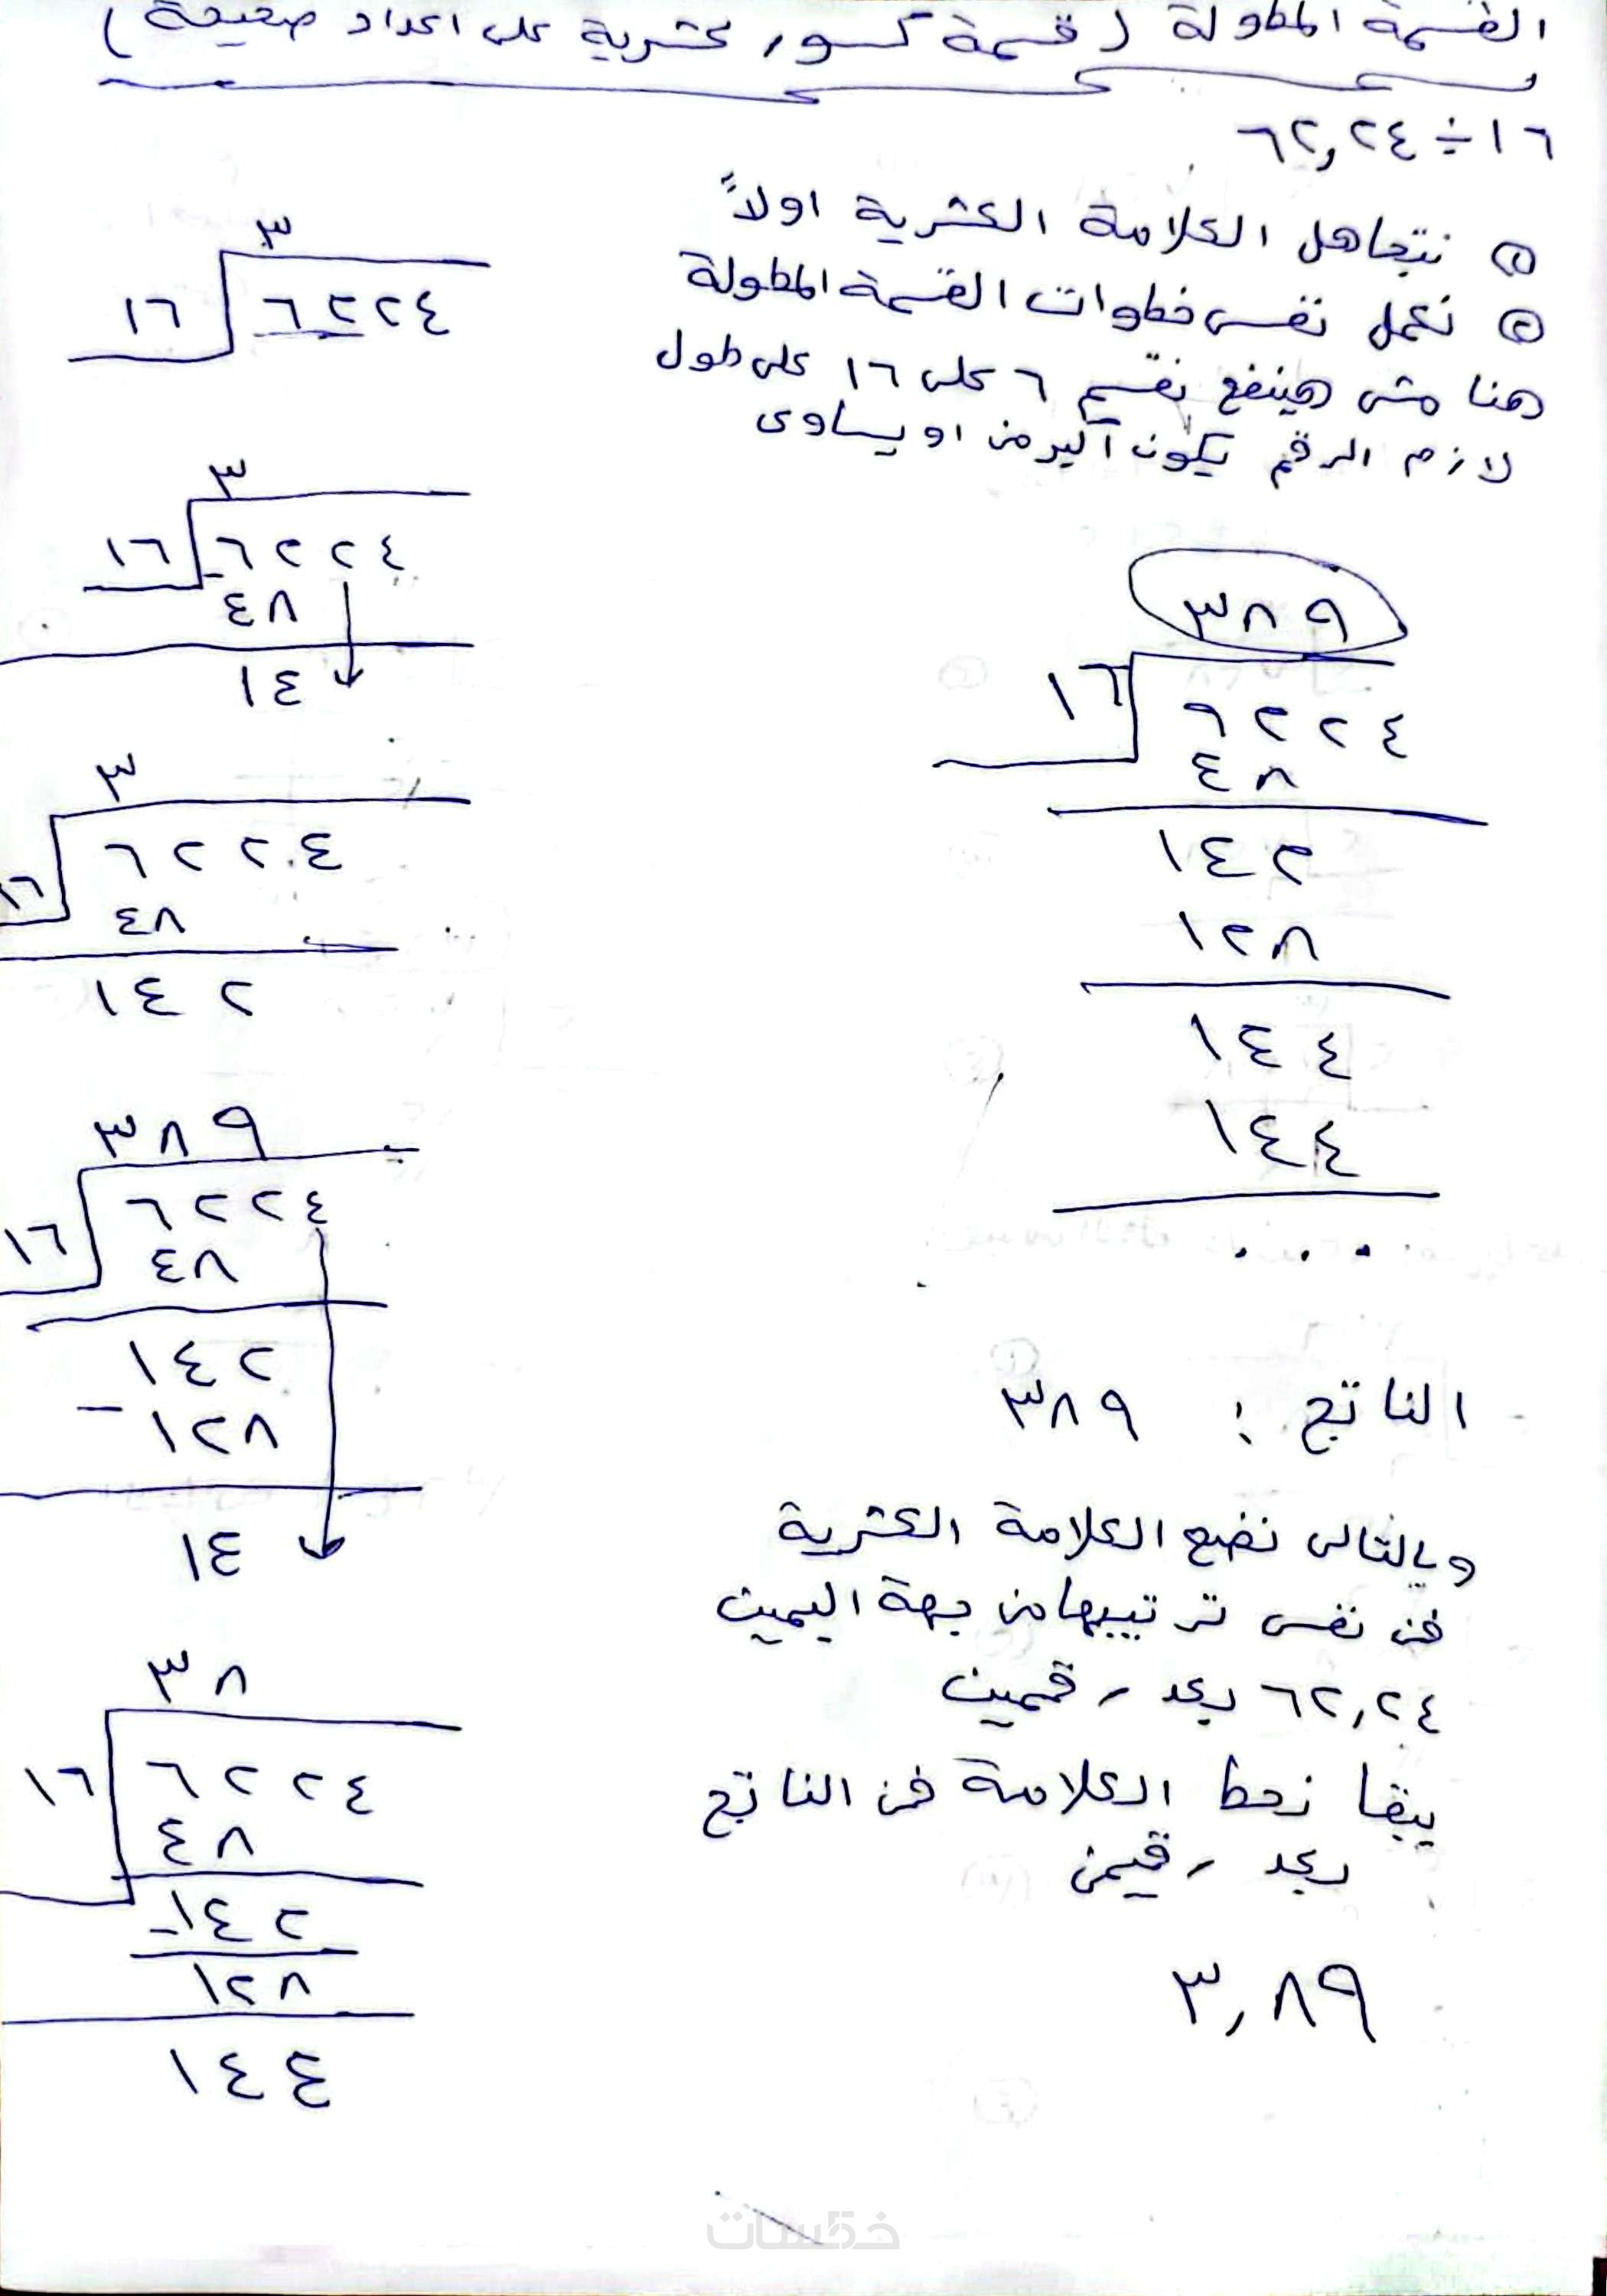 القسمة المطولة (قسمة كسور عشرية على اعداد صحيحة)
٦٢,٢٤ ÷ ١٦
① نتجاهل العلامة العشرية اولاً
② نعمل نفس خطوات القسمة المطولة
هنا مش هينفع نقسم ٦ على ١٦ على طول
لازم الرقم يكون اكبر من او يساوى
٣
١٦ ٦٢٢٤
٣
١٦ ٦٢٢٤
- ٤٨
١٤
٣
١٦ ٦٢٢٤
٤٨
١٤٢
٣٨٩
١٦ ٦٢٢٤
٤٨
١٤٢
- ١٢٨
١٤
٣٨
١٦ ٦٢٢٤
٤٨
- ١٤٢
١٢٨
١٤٤
٣٨٩
١٦ ٦٢٢٤
٤٨
١٤٢
١٢٨
١٤٤
١٤٤
٠٠٠
الناتج : ٣٨٩
وبالتالى نضع العلامة العشرية
فى نفس ترتيبها من جهة اليمين
٦٢,٢٤ بعد رقمين
يبقا نحط العلامة فى الناتج
بعد رقمين
٣,٨٩
خمسات